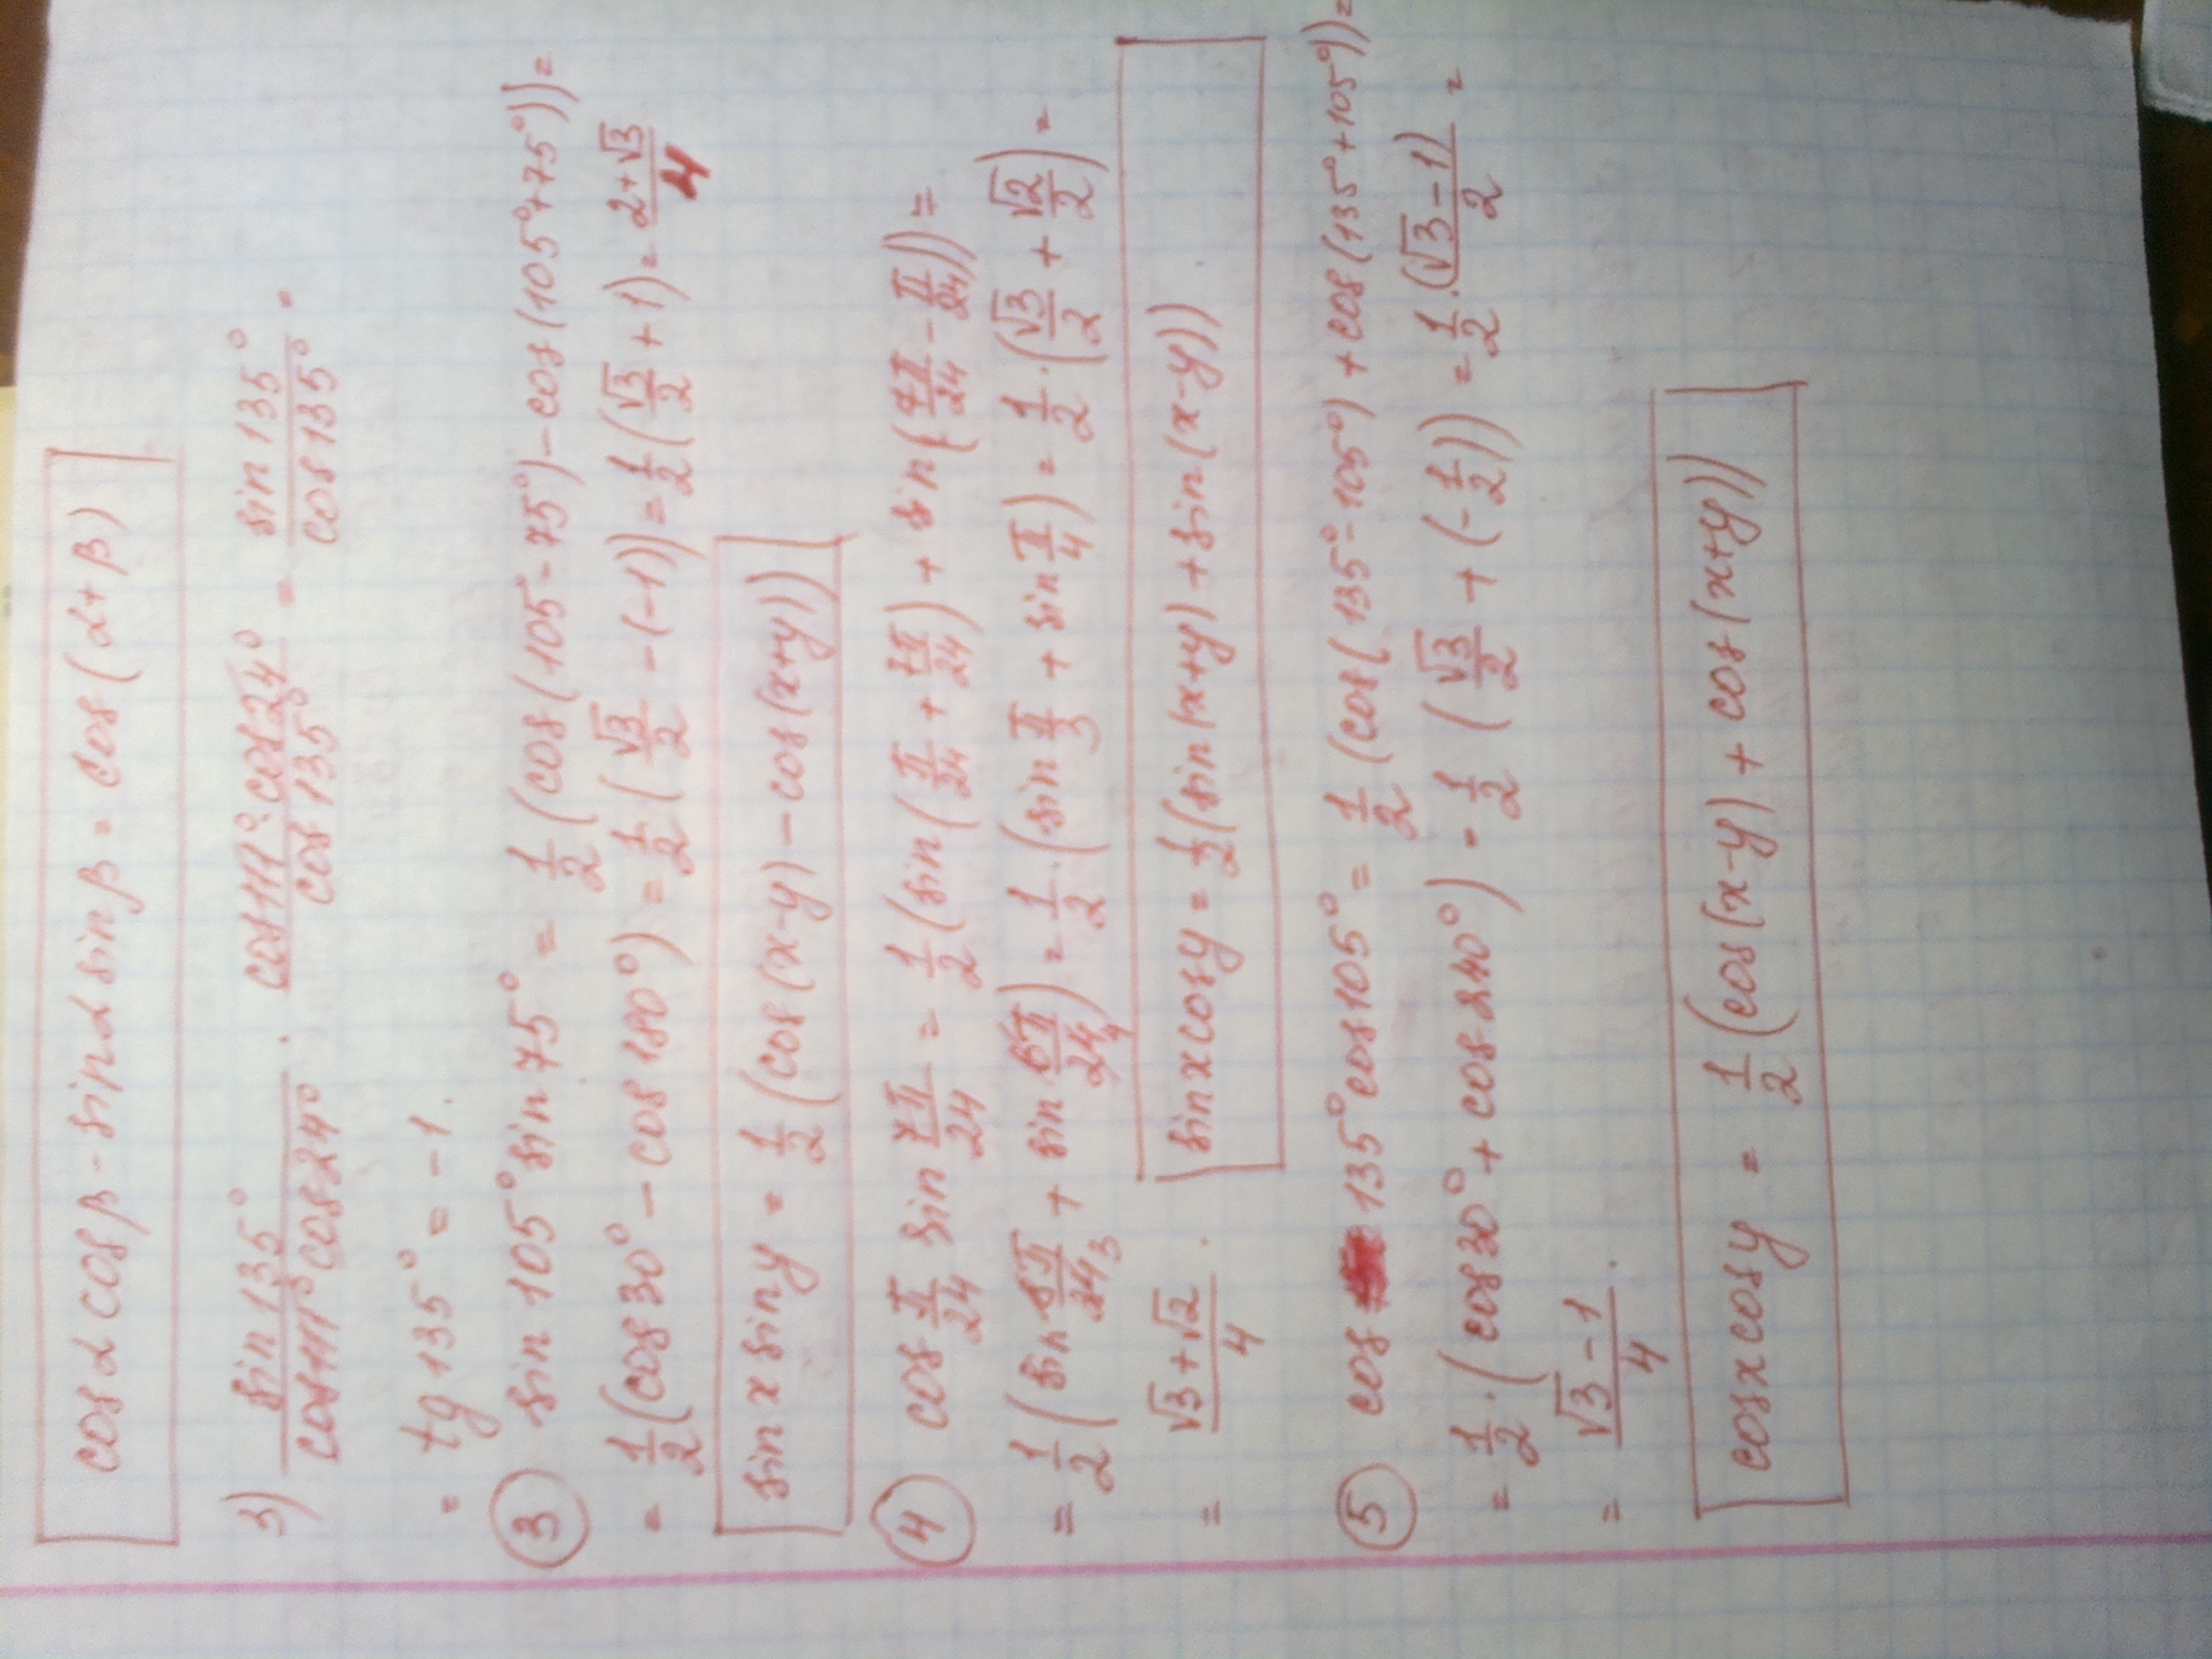 cos α cos β - sin α sin β = cos (α + β)
3) sin 135° / cos 111° cos 24° · cos 111° · cos 24° / cos 135° = sin 135° / cos 135° =
= tg 135° = -1.
③ sin 105° sin 75° = 1/2 (cos (105° - 75°) - cos (105° + 75°)) =
= 1/2 (cos 30° - cos 180°) = 1/2 (√3/2 - (-1)) = 1/2 (√3/2 + 1) = (2 + √3)/4
sin x sin y = 1/2 (cos (x - y) - cos (x + y))
④ cos π/24 sin 7π/24 = 1/2 (sin (π/24 + 7π/24) + sin (7π/24 - π/24)) =
= 1/2 (sin 8π/24 3 + sin 6π/24 4) = 1/2 · (sin π/3 + sin π/4) = 1/2 · (√3/2 + √2/2) =
= (√3 + √2)/4 .
sin x cos y = 1/2 (sin (x + y) + sin (x - y))
⑤ cos 135° cos 105° = 1/2 (cos (135° - 105°) + cos (135° + 105°)) =
= 1/2 · (cos 30° + cos 240°) = 1/2 (√3/2 + (-1/2)) = 1/2 · (√3 - 1)/2 =
= (√3 - 1)/4 .
cos x cos y = 1/2 (cos (x - y) + cos (x + y))